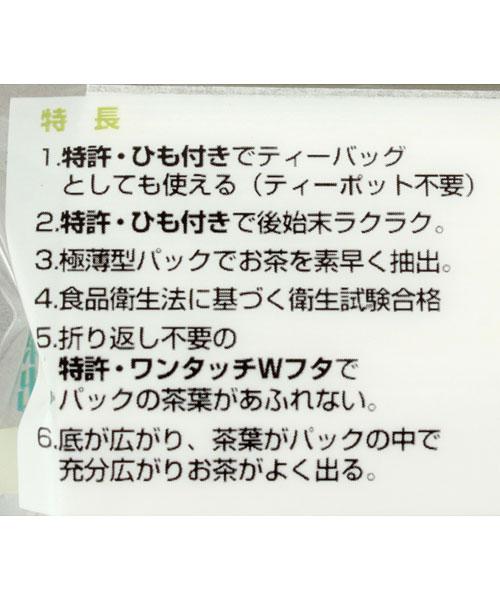 特長
1.特許・ひも付きでティーバッグ
としても使える（ティーポット不要）
2.特許・ひも付きで後始末ラクラク。
3.極薄型パックでお茶を素早く抽出。
4.食品衛生法に基づく衛生試験合格
5.折り返し不要の
特許・ワンタッチWフタで
パックの茶葉があふれない。
6.底が広がり、茶葉がパックの中で
充分広がりお茶がよく出る。